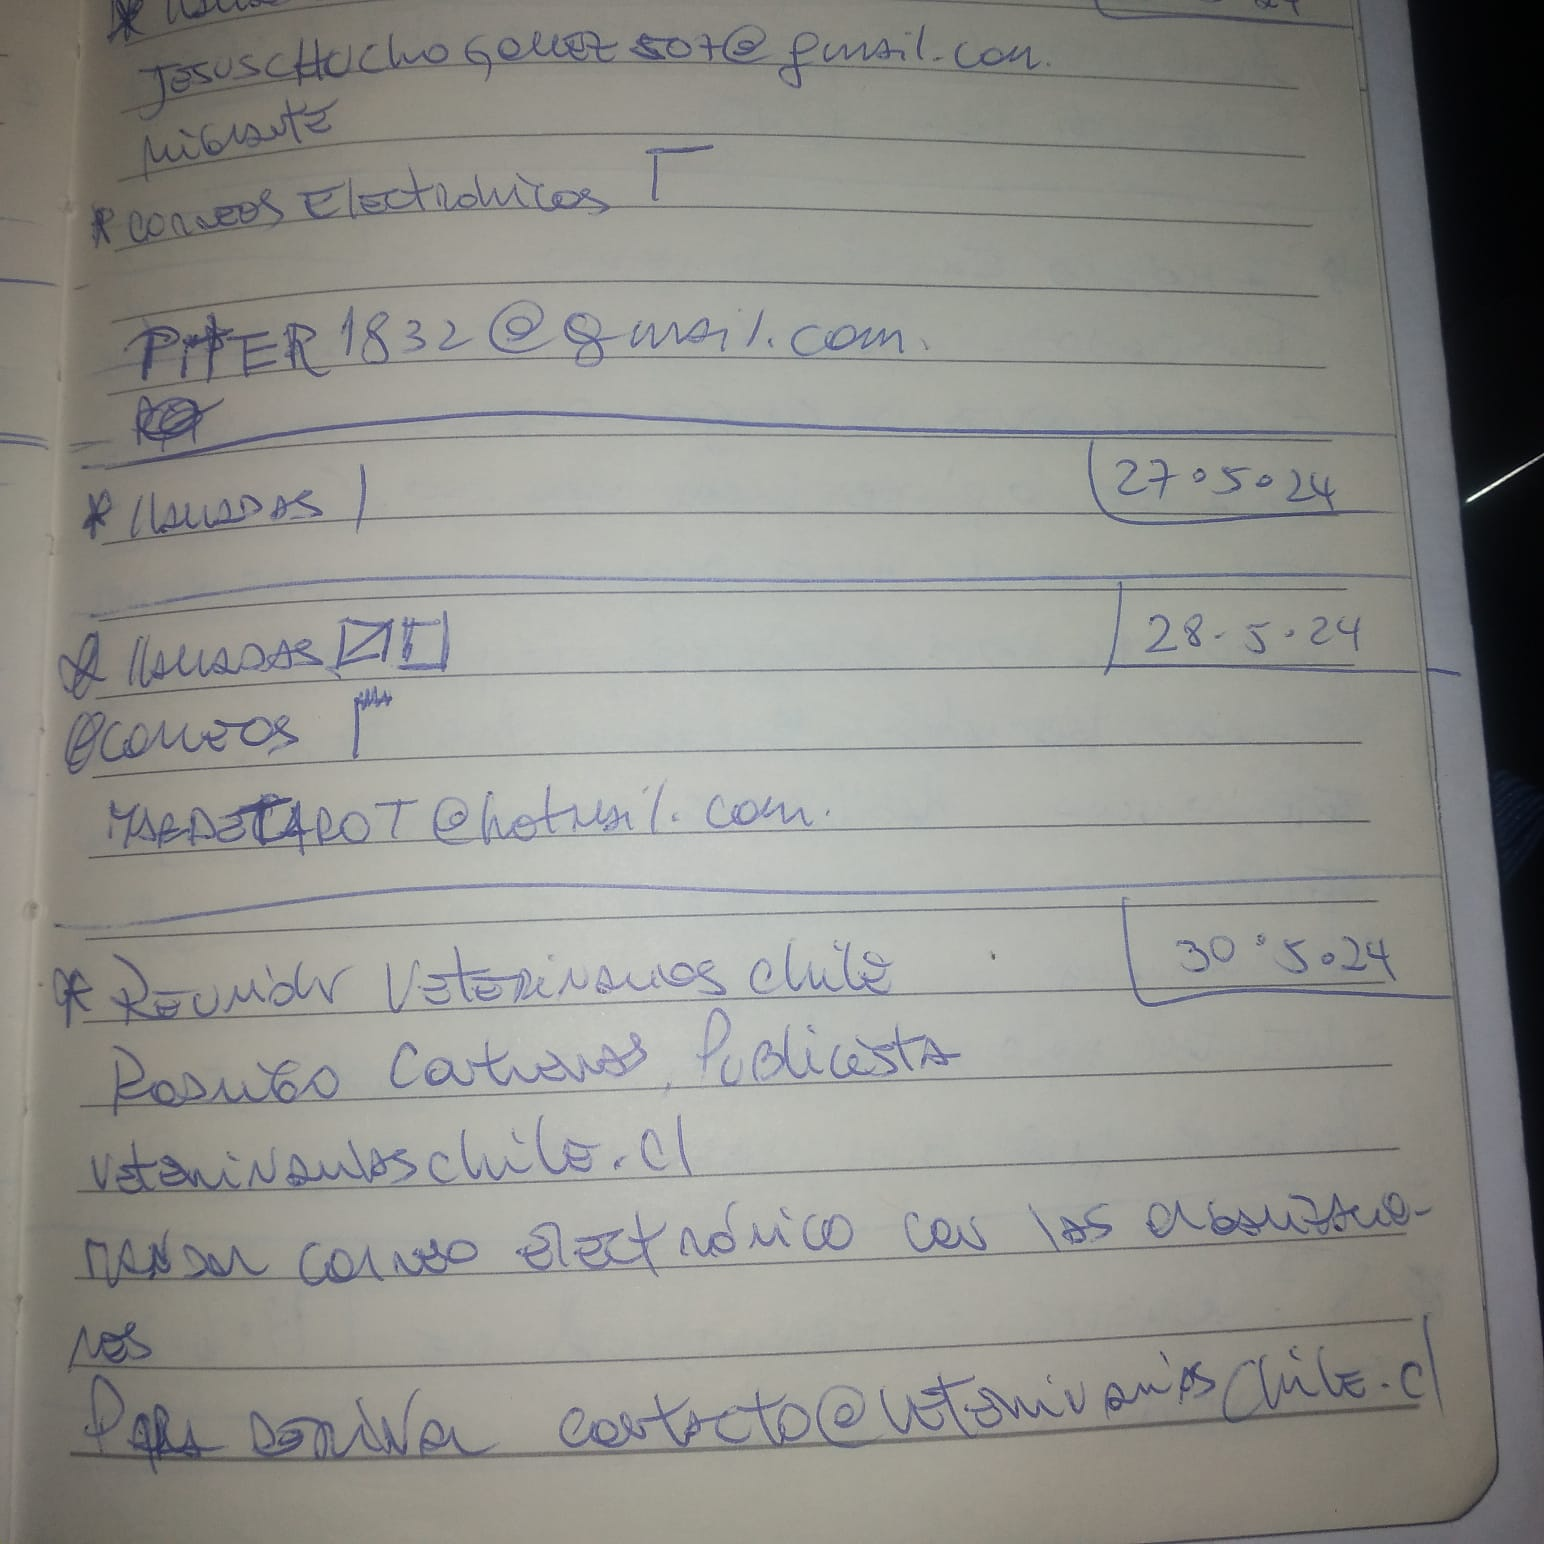 JESUSCHUCHOGOMEZ507@gmail.com.
Migrante
* Correos Electronicos
PITER1832@gmail.com.
* llamadas 27.5.24
* llamadas 28.5.24
Correos
MARDETAROT@hotmail.com.
* Reunión Veterinarios Chile 30.5.24
Contreras, Publicista
veterinariaschile.cl
Mandar correo electrónico con las
nos
Para derivar contacto@veterinariaschile.cl